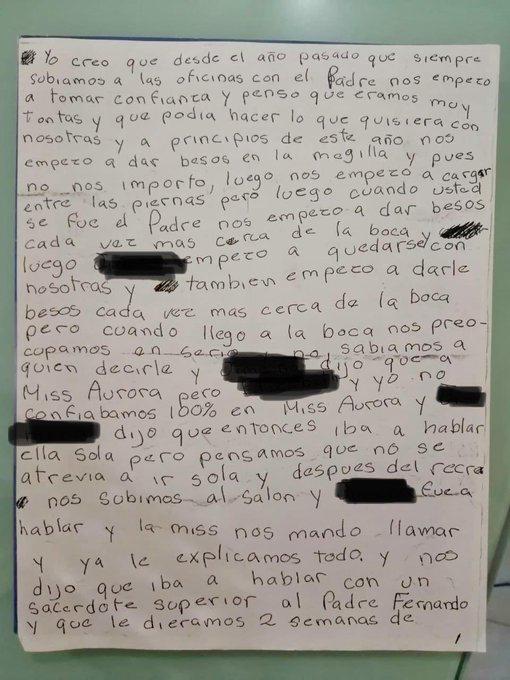 Yo creo que desde el año pasado que siempre
subiamos a las oficinas con el Padre nos empezo
a tomar confianza y penso que eramos muy
tontas y que podia hacer lo que quisiera con
nosotras y a principios de este año nos
empezo a dar besos en la megilla y pues
no nos importo, luego nos empezo a cargar
entre las piernas pero luego cuando usted
se fue el Padre nos empezo a dar besos
cada vez mas cerca de la boca y
luego empezo a quedarse con
nosotras y tambien empezo a darle
besos cada vez mas cerca de la boca
pero cuando llego a la boca nos preo-
cupamos en serio no sabiamos a
quien decirle y dijo que a
Miss Aurora pero y yo no
confiabamos 100% en Miss Aurora y
dijo que entonces iba a hablar
ella sola pero pensamos que no se
atrevia a ir sola y despues del recre
nos subimos al salon y fue a
hablar y la miss nos mando llamar
y ya le explicamos todo. y nos
dijo que iba a hablar con un
sacerdote superior al Padre Fernando
y que le dieramos 2 semanas de
1